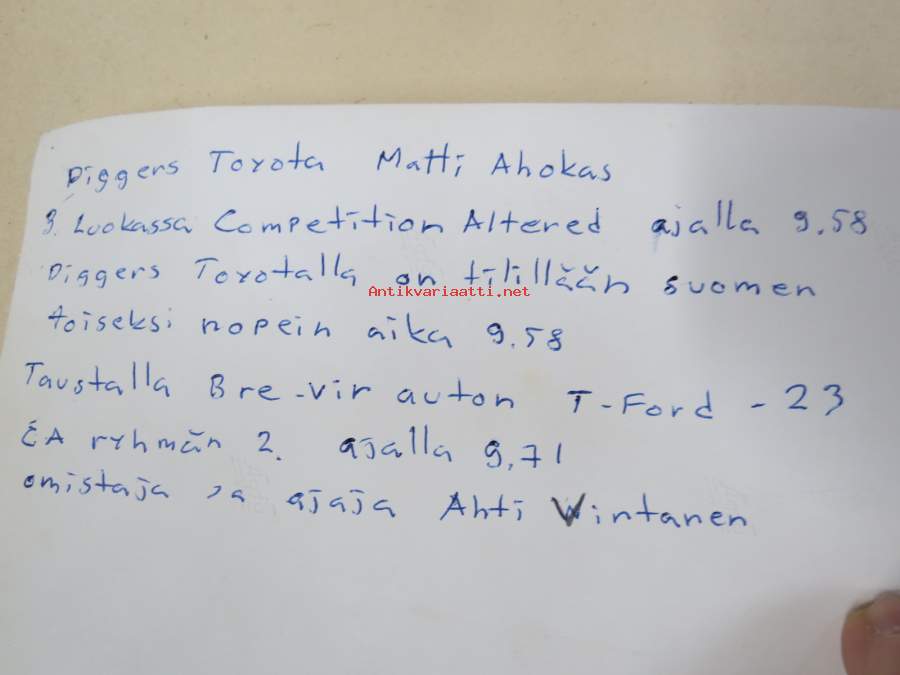 Diggers Toyota Matti Ahokas
3. Luokassa Competition Altered ajalla 9.58
Diggers Toyotalla on tilillään suomen
Antikvariaatti.net
toiseksi nopein aika 9.58
Taustalla Bre-Vir auton T-Ford - 23
CA ryhmän 2. ajalla 9,71
omistaja ja ajaja Ahti Wirtanen